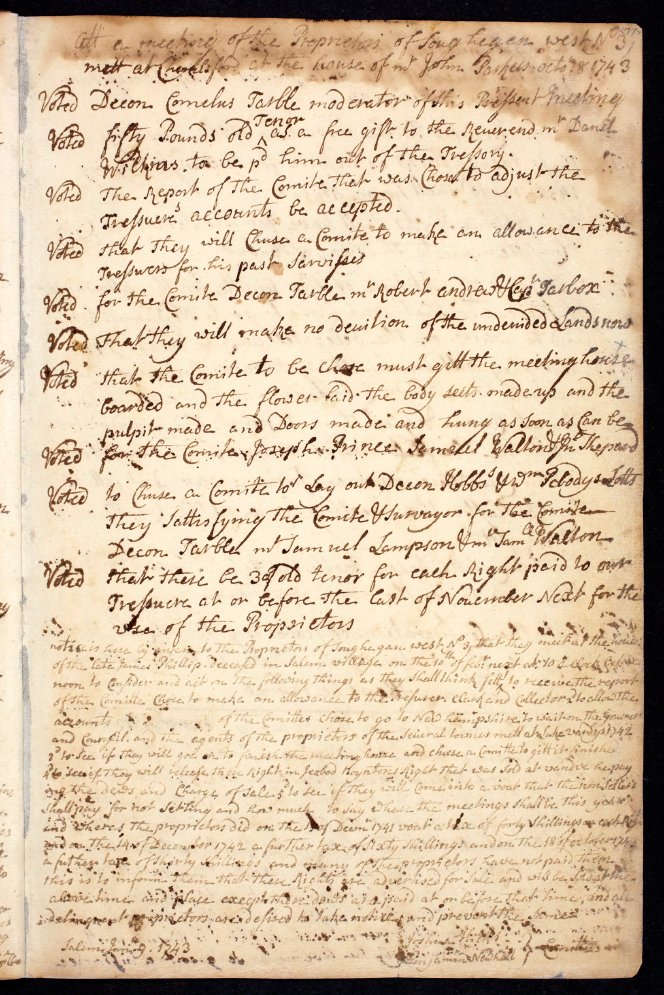 Att a meeting of the Proprietors of Soughegan west No 3
mett at Chemlsford at the house of mr John Parkers octo 18 1743
Voted Decon Cornelus Tarble moderator of this Pressent meeting
Voted fifty Pounds old Tenor as a free gift to the Reverend mr Danel
Wilkins to be pd him out of the Tressory.
Voted The Report of the Comite that was Chose to adjust the
Tressuers accounts be accepted.
Voted that they will Chuse a Comite to make an allowance to the
Tressuers for his past Sarvisses
Voted for the Comite Decon Tarble mr Robert andrews & Capt Tarbox
Voted that they will make no devition of the undevided Lands now
Voted that the Comite to be chose must gitt the meeting house
boarded and the flower laid the body seets made up and the
pulpit made and Doors made and hung as soon as Can be
Voted for the Comite Joseph Prince Samuel Walton & Shepard
Voted to Chuse a Comite to Lay out Decon Hobbs & Wm Pebodys Lotts
They Sattisfying the Comite & Survayor for the Comite
Decon Tarble mr Samuel Lampson & mr Saml Walton
Voted that there be 30s old tenor for each Right paid to our
Tressuere at or before the last of November Next for the
use of the Proprietors
notice is here by given to the Proprietors of Soughegan west No 3 that they meet at the house
of the late James Phillip Decesed in Salem village on the 10 of febr next at 10 Clock
noon to Consider and act on the following things as they Shall think fitt to receive the report
of the Comitte Chose to make an allowance to the Tresurer Clark and Collector 2 to allow the
accounts of the Comittes chose to go to New hampshire to wait on the Govener
and Councill and the agents of the proprietors of the Seueral townes mett at 1742
3d to See if they will goe on to finish the meeting house and chuse a Comite to gitt it finished
4 to See if they will release there Right in Jacob Boyntons Right that was Sold at vandue he pay
ing the dews and Charge of Sale 5 to See if they will Come into a voat that the non Setlers
Shall pay for not Settling and how much to Say where the meetings Shall be this year
and whereas the proprietors did on the of Decemr 1741 voat a tax of forty Shillings on each Right
and on the 14 of December 1742 a further tax of Sixty Shillings and on the 18 of october 1743
a further tax of thirty Shillings and many of the proprietors have not paid them
this is to inform them that there Rights are advertised for Sale and will be Sold at the
above time and place except there dews are paid at or before that time, and all
delinquent proprietors are desired to take notice and prevent the Same
Salem Jan 9 1743
Joshua
Benjamin Comittee